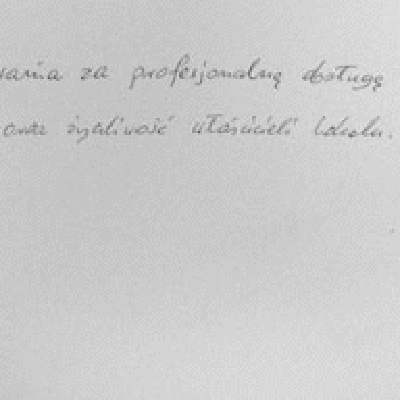 wania za profesjonalną obsługę
oraz życzliwość właścicieli lokalu.